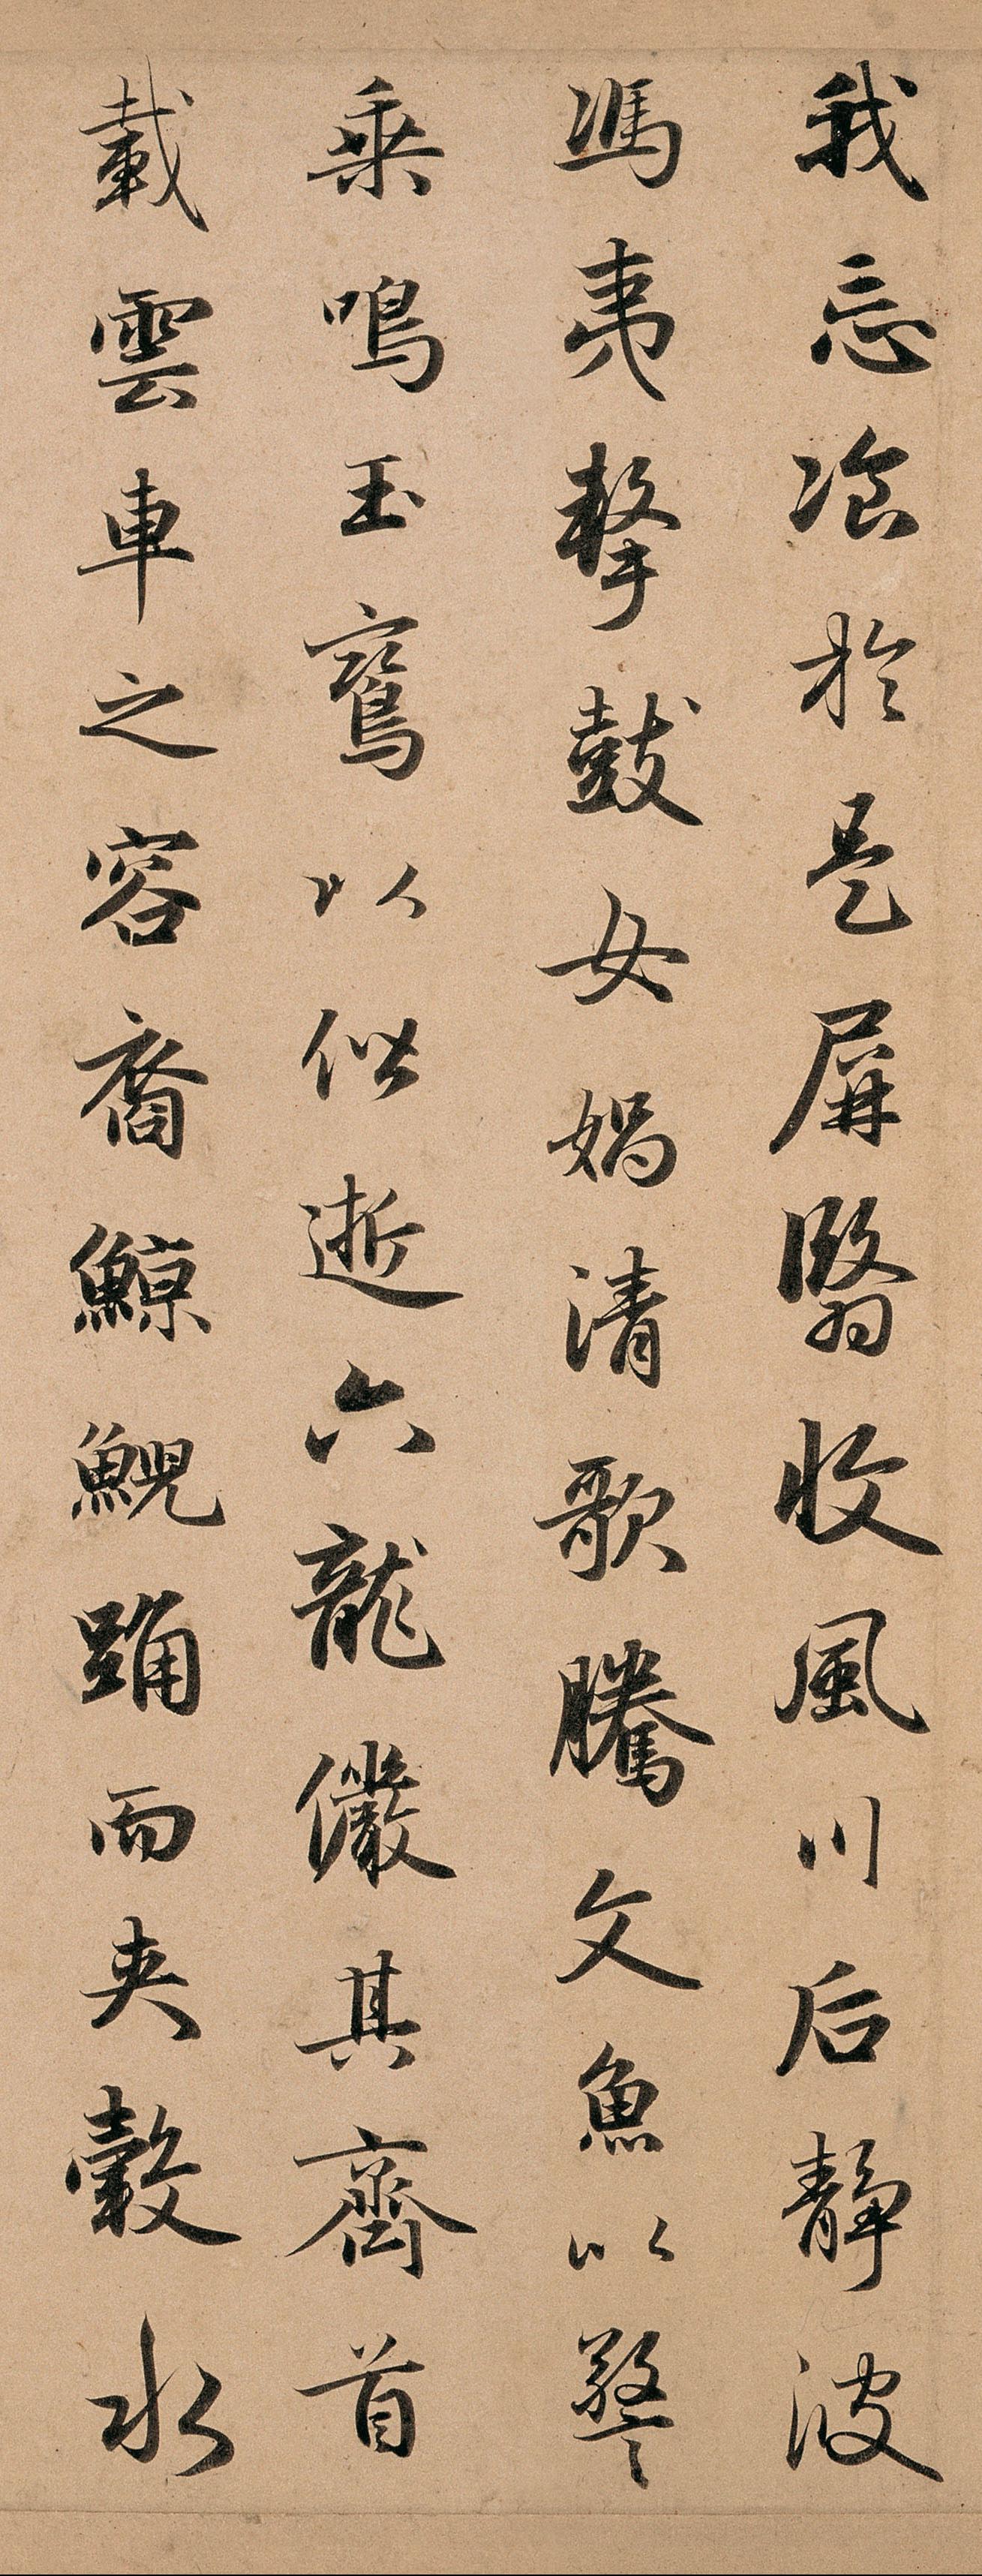 我忘飡於是屏翳收風川后静波
馮夷擊鼓女媧清歌騰文魚以警
乗鳴玉鸞以偕逝六龍儼其齊首
載雲車之容裔鯨鯢踊而夾轂水